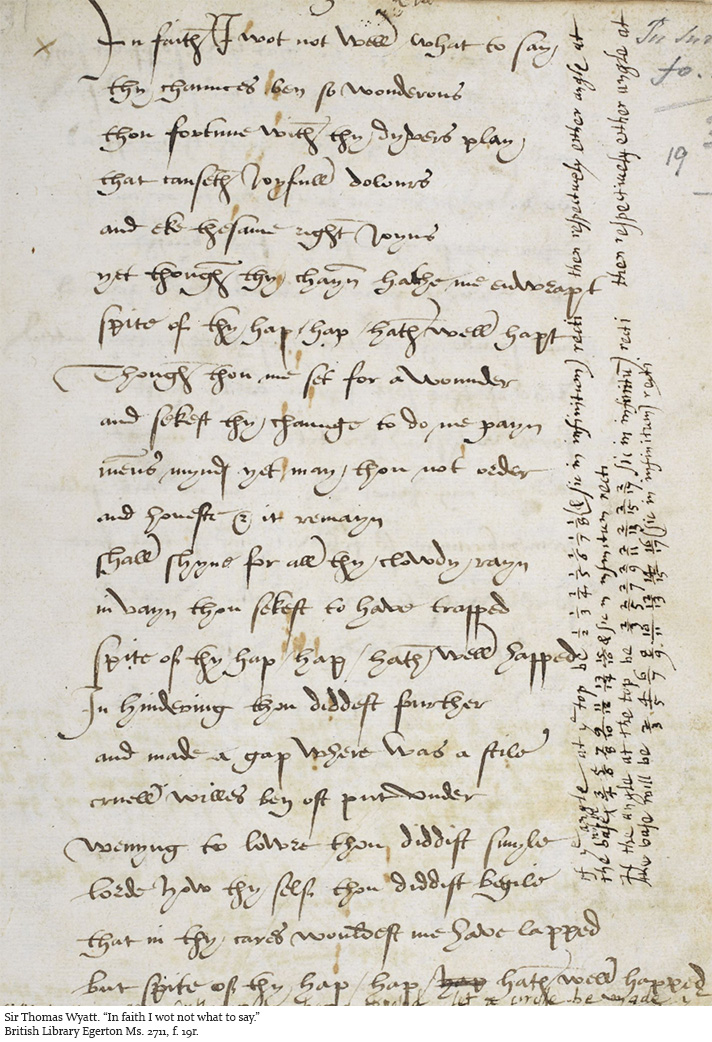 In faith I wot not well what to say
thy chaunces ben so wonderous
thou fortune with thy dyvers play
that causeth Joyfull dolours
and eke thesame right Joyus
yet though thy chayn hathe me enwrapt
spite of thy hap hap hath well hapt
Though thou me set for a wounder
and sekest thy chaunge to do me payn
mens mynd yet may thou not order
and honeste & it remayn
shall shyne for all thy clowdy rayn
in vayn thou sekest to have trapped
spite of thy hap hap hath well happed
In hindering thou diddest further
and made a gap where was a stile
cruell willes ben oft put under
wenyng to lowre thou diddist smyle
lorde how thy self thou diddist begile
that in thy cares wouldest me have lapped
but spite of thy hap hap hap hath well happed
19
If ye angle at ye top be
sic in infinitum recti then respectively ether angle at
the base
sic in infinitum recti
If the angle at the top be
sic in infinitum recti then respectively ether angle at
the base will be
sic in infinitum recti
Sir Thomas Wyatt. “In faith I wot not what to say.”
British Library Egerton Ms. 2711, f. 19r.